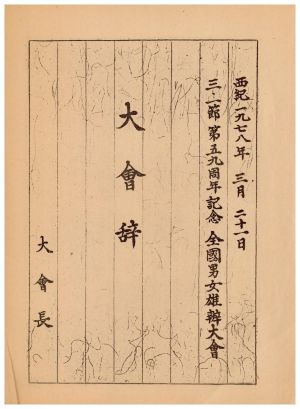 西紀一九七八年 三月 二十一日
三·一節 第五九周年 記念 全國男女雄辯大會
大會辞
大會長